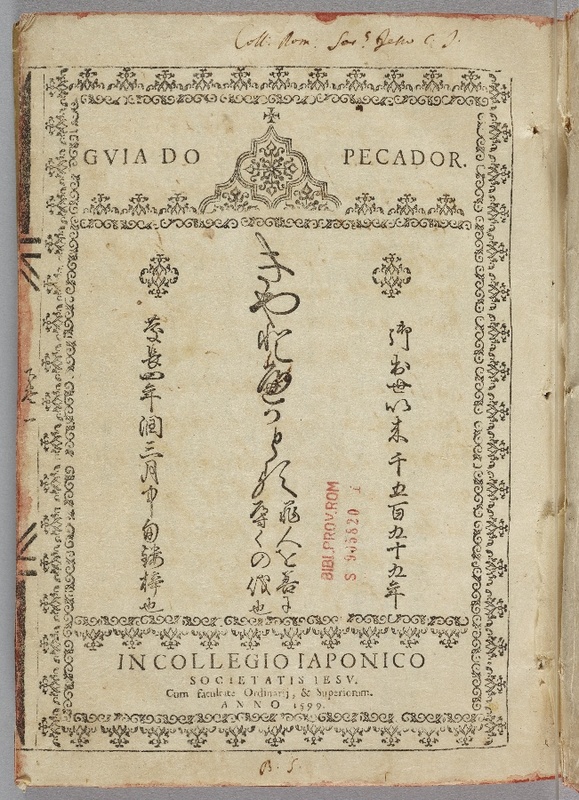 Coll. Rom.
GVIA DO PECADOR.
御出世以来千五百九十九年
きやとへかとる
罪人を善に
導くの儀也
慶長四年潤三月中旬鏤梓也
BIBL.PROV.ROM
IN COLLEGIO IAPONICO
SOCIETATIS IESV.
Cum facultate Ordinarij, & Superiorum.
ANNO 1599.
B. S.